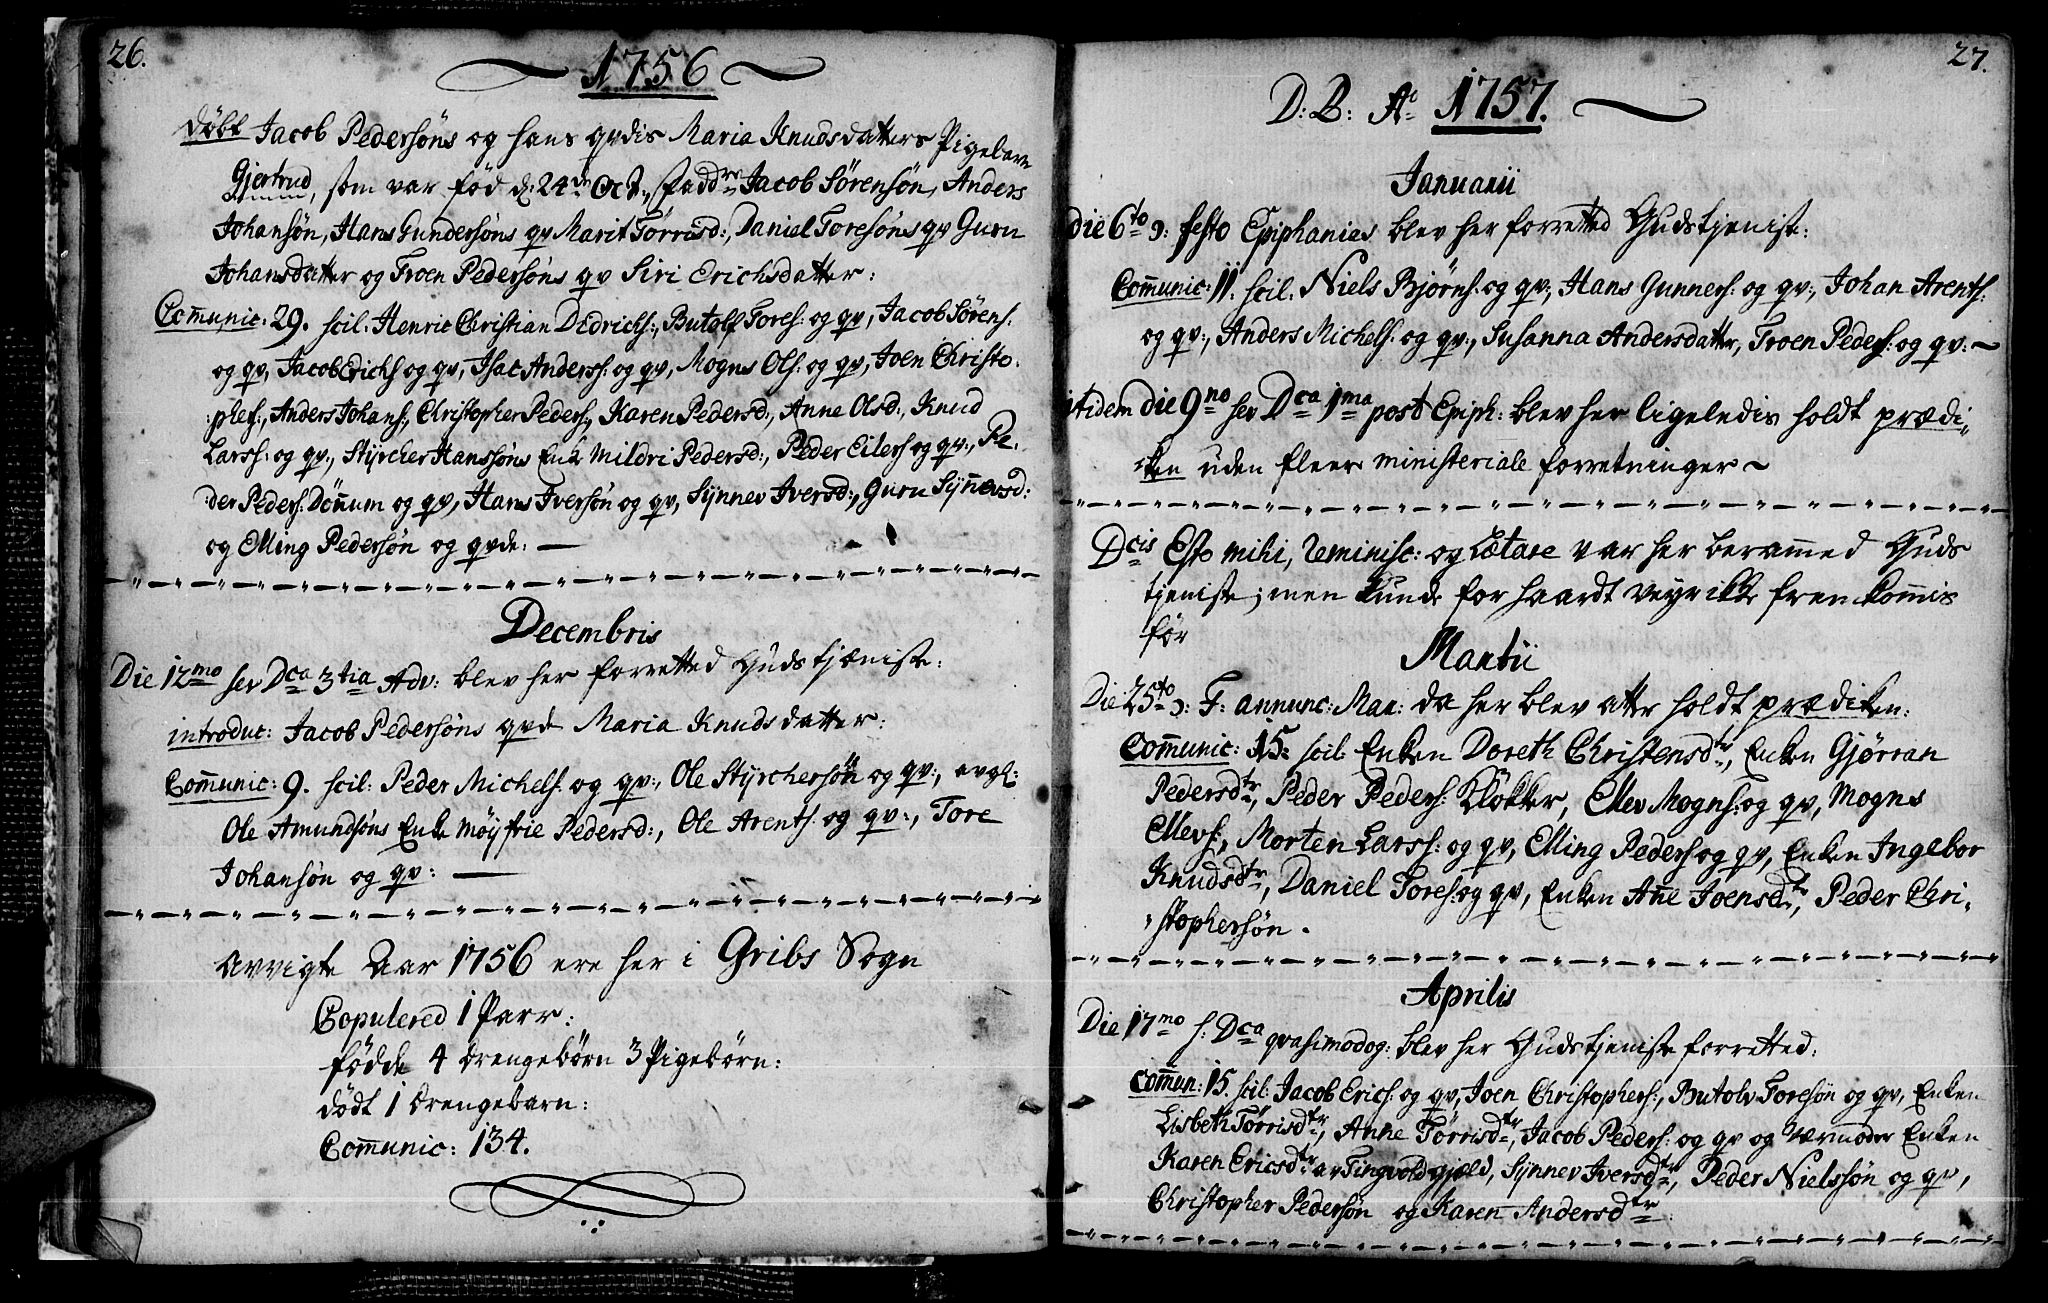 26.
1756
døbt Jacob Pedersøns og hans qvdis Maria Knudsdatters Pigebarn
Gjertrud, som var fød d: 24de Oct:, Faddre Jacob Sørensøn, Anders
Johansøn, Hans Gundersøns qv Marit Tørrisd:, Daniel Toresøns qv Guru
Johansdatter og Troen Pedersøns qv Siri Erichsdatter:
Com̄unic: 29. scil: Henric Christian Didrichs:, Butolf Tores: og qv, Jacob Sørens:
og qv, Jacob Erichs og qv, Isac Anderss: og qv, Mogns Ols: og qv, Joen Christo:
:phers:, Anders Johans:, Christopher Peders:, Karen Pedersd:, Anne Olsd:, Knud
Larss: og qv:, Styrcher Hanssøns Enke Mildri Pedersd:, Peder Eilers og qv:, Pe:
:der Peders: Dön̄um og qv, Hans Iversøn og qv, Synnev Iversd:, Guru Syñevsd:
og Elling Pedersøn og qvde: —
Decembris
Die 12mo sev Dca 3tia Adv: blev her forretted Gudstjæniste:
introduc: Jacob Pedersøns qvde Maria Knudsdatter:
Com̄unic: 9. scil: Peder Michels: og qv:, Ole Styrchersøn og qv:, avgl:
Ole Amundsøns Enke Møyfrie Pedersd:, Ole Arents: og qv:, Tore
Johansøn og qv: —
Avvigte Aar 1756 ere her i Gribs Sogn
Copulered 1 Parr:
fødde 4 Drengebørn 3 Pigebørn:
dødt 1 Drengebarn:
Com̄unic: 134.
27.
D: B: Ao 1757.
Januarii
Die 6to ɔ: festo Epiphanias blev her forretted Gudstjeniste:
Com̄unic: 11. scil. Niels Bjørns: og qv:, Hans Gunners: og qv:, Johan Arents:
og qv:, Anders Michels: og qv:, Susanna Andersdatter, Troen Peders: og qv: ~
itidem die 9no sev Dca 1ma post Epiph: blev her ligeledis holdt prædi„
„ken uden fleer ministeriale forretninger ~
Dcis Esto mihi, reminisc: og Lætare var her beram̄ed Guds
tjeniste; men kunde for haardt veyr ikke frem kom̄is
før
Martii
Die 25to ɔ: F: annunc: Mar: da her blev atter holdt prædiken:
Com̄unic: 15: scil: Enken Doreth Christensdtr, Enken Gjørran
Pedersdtr, Peder Peders: Kløkker, Ellev Mogns: og qv, Mogns
Ellevs:, Morten Larss: og qv, Elling Peders og qv, Enken Ingebor
Knudsdtr, Daniel Tores: og qv, Enken Añe Joensdtr, Peder Chri„
„stophersøn.
Aprilis
Die 17mo s: Dca qvasimodog: blev her Gudstjeniste forretted:
Com̄un: 15. scil: Jacob Erics: og qv, Joen Christophers:, Butolv Toresøn og qv, Enken
Lisbeth Tørrisdtr, Anne Tørrisdtr, Jacob Peders: og qv og Vermoder Enken
Karen Ericsdtr av Tingvold gjæld, Synnev Iversdtr, Peder Nielssøn og qv,
Christopher Pedersøn og Karen Andersdtr.